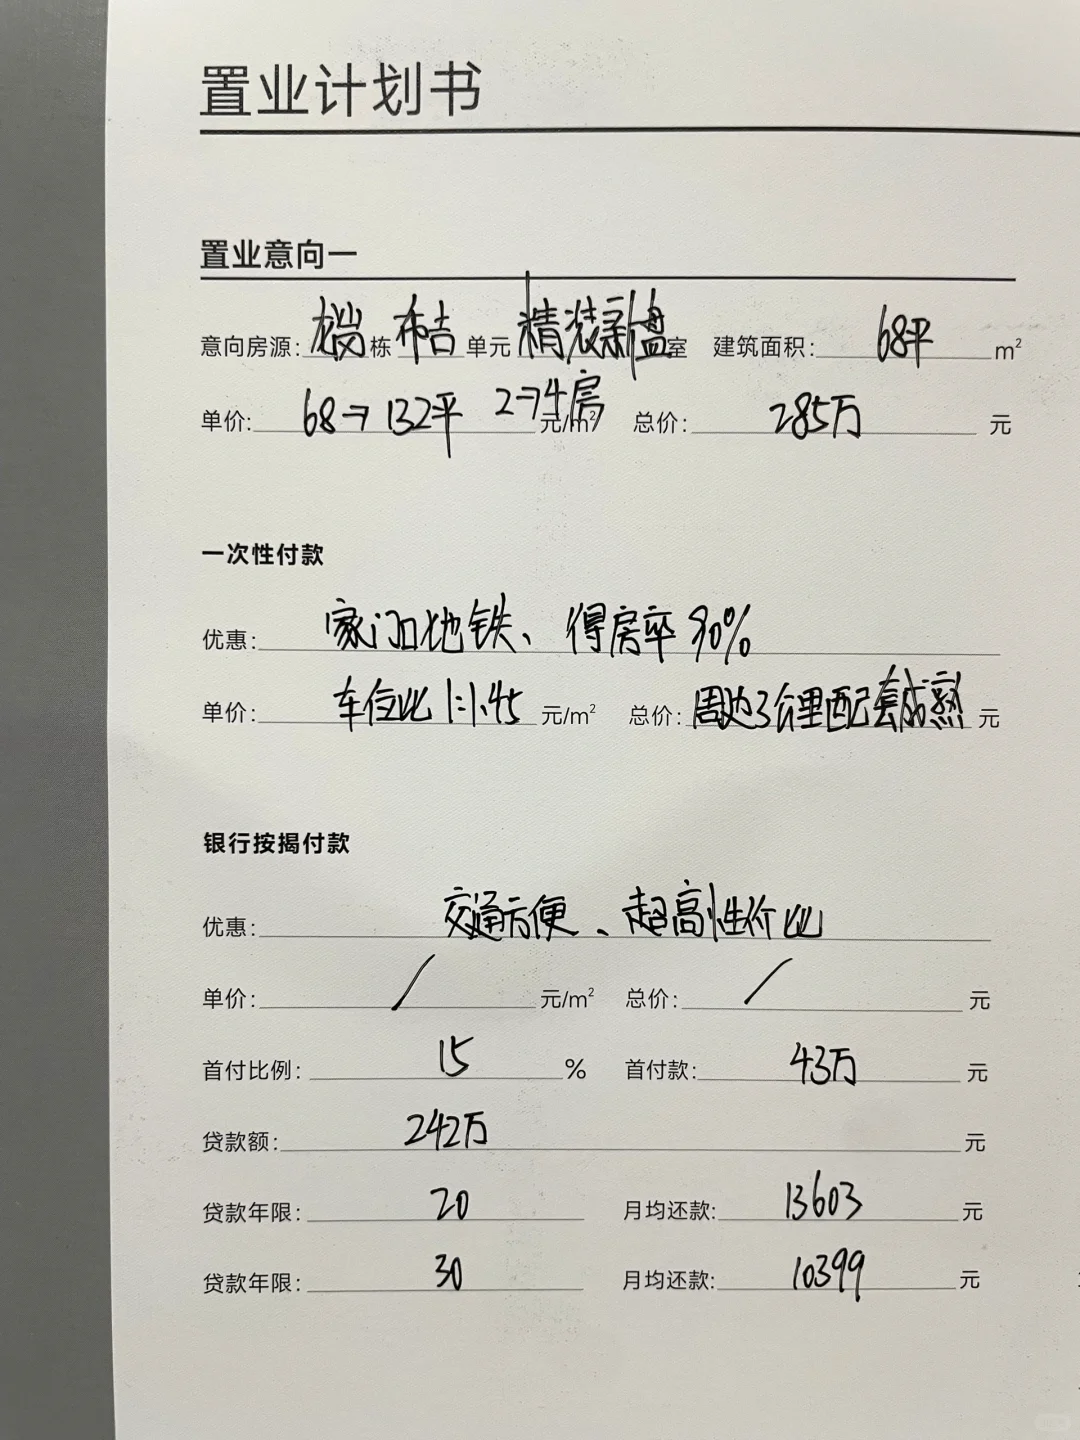 置业计划书
置业意向一
意向房源: 龙岗 栋 布吉 单元 精装新盘 室 建筑面积: 68平 m²
单价: 68→132平 2→4房 元/m² 总价: 285万 元
一次性付款
优惠: 家门口地铁、得房率90%
单价: 车位比1:1.45 元/m² 总价: 周边3公里配套成熟 元
银行按揭付款
优惠: 交通方便、超高性价比
单价: / 元/m² 总价: / 元
首付比例: 15 % 首付款: 43万 元
贷款额: 242万 元
贷款年限: 20 月均还款: 13603 元
贷款年限: 30 月均还款: 10399 元